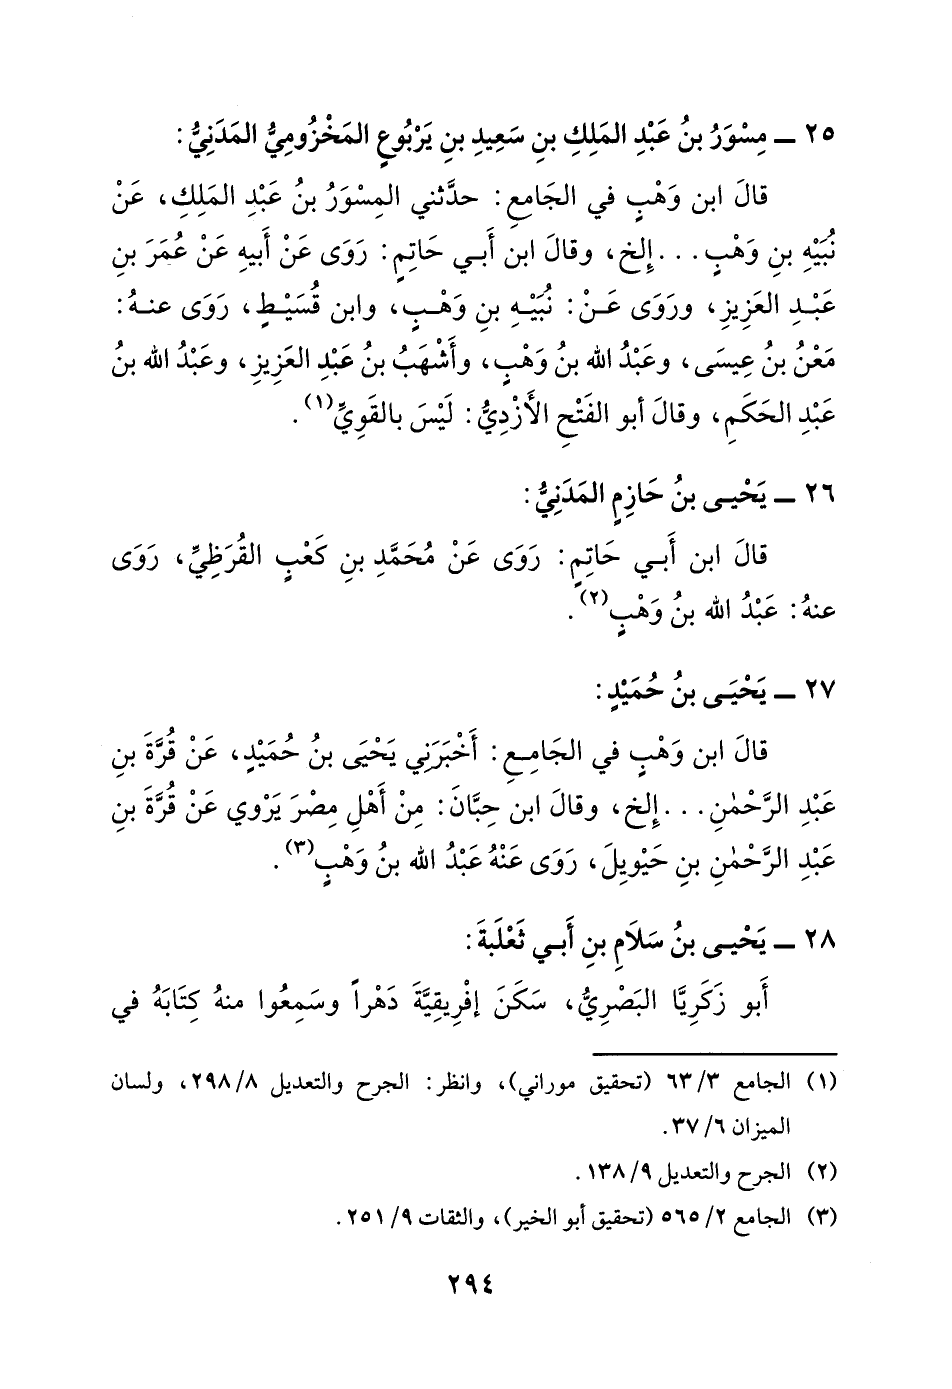 ٢٥ ــ مِسْوَرُ بنُ عَبْدِ المَلِكِ بنِ سَعِيدِ بنِ يَرْبُوعٍ المَخْزُومِيُّ المَدَنِيُّ:
قالَ ابن وَهْبٍ في الجَامعِ: حدَّثني المِسْوَرُ بنُ عَبْدِ المَلِكِ، عَنْ
نُبَيْهِ بنِ وَهْبٍ. . .إلخ، وقالَ ابن أَبي حَاتِمٍ: رَوَى عَنْ أَبيهِ عَنْ عُمَرَ بنِ
عَبْدِ العَزِيزِ، ورَوَى عَنْ: نُبَيْهِ بنِ وَهْبٍ، وابن قُسَيْطٍ، رَوَى عنهُ:
مَعْنُ بنُ عِيسَى، وعَبْدُ الله بنُ وَهْبٍ، وأَشْهَبُ بنُ عَبْدِ العَزِيزِ، وعَبْدُ الله بنُ
عَبْدِ الحَكَمِ، وقالَ أبو الفَتْحِ الأَزْدِيُّ: لَيْسَ بالقَوِيِّ(١).
٢٦ ــ يَحْيى بنُ حَازِمٍ المَدَنِيُّ:
قالَ ابن أَبي حَاتِمٍ: رَوَى عَنْ مُحَمَّدِ بنِ كَعْبٍ القُرَظِيِّ، رَوَى
عنهُ: عَبْدُ الله بنُ وَهْبٍ(٢).
٢٧ ــ يَحْيَى بنُ حُمَيْدٍ:
قالَ ابن وَهْبٍ في الجَامِعِ: أَخْبَرَنِي يَحْيَى بنُ حُمَيْدٍ، عَنْ قُرَّةَ بنِ
عَبْدِ الرَّحْمٰنِ. . .إلخ، وقالَ ابن حِبَّانَ: مِنْ أَهْلِ مِصْرَ يَرْوِي عَنْ قُرَّةَ بنِ
عَبْدِ الرَّحْمٰنِ بنِ حَيْوِيلَ، رَوَى عَنْهُ عَبْدُ الله بنُ وَهْبٍ(٣).
٢٨ ــ يَحْيى بنُ سَلَامِ بنِ أَبي ثَعْلَبةَ:
أَبو زَكَرِيَّا البَصْرِيُّ، سَكَنَ إفْرِيقِيَّةَ دَهْراً وسَمِعُوا منهُ كِتَابَهُ في
(١) الجامع ٦٣/٣ (تحقيق موراني)، وانظر: الجرح والتعديل ٢٩٨/٨، ولسان
الميزان ٣٧/٦.
(٢) الجرح والتعديل ١٣٨/٩.
(٣) الجامع ٥٦٥/٢ (تحقيق أبو الخير)، والثقات ٢٥١/٩.
٢٩٤